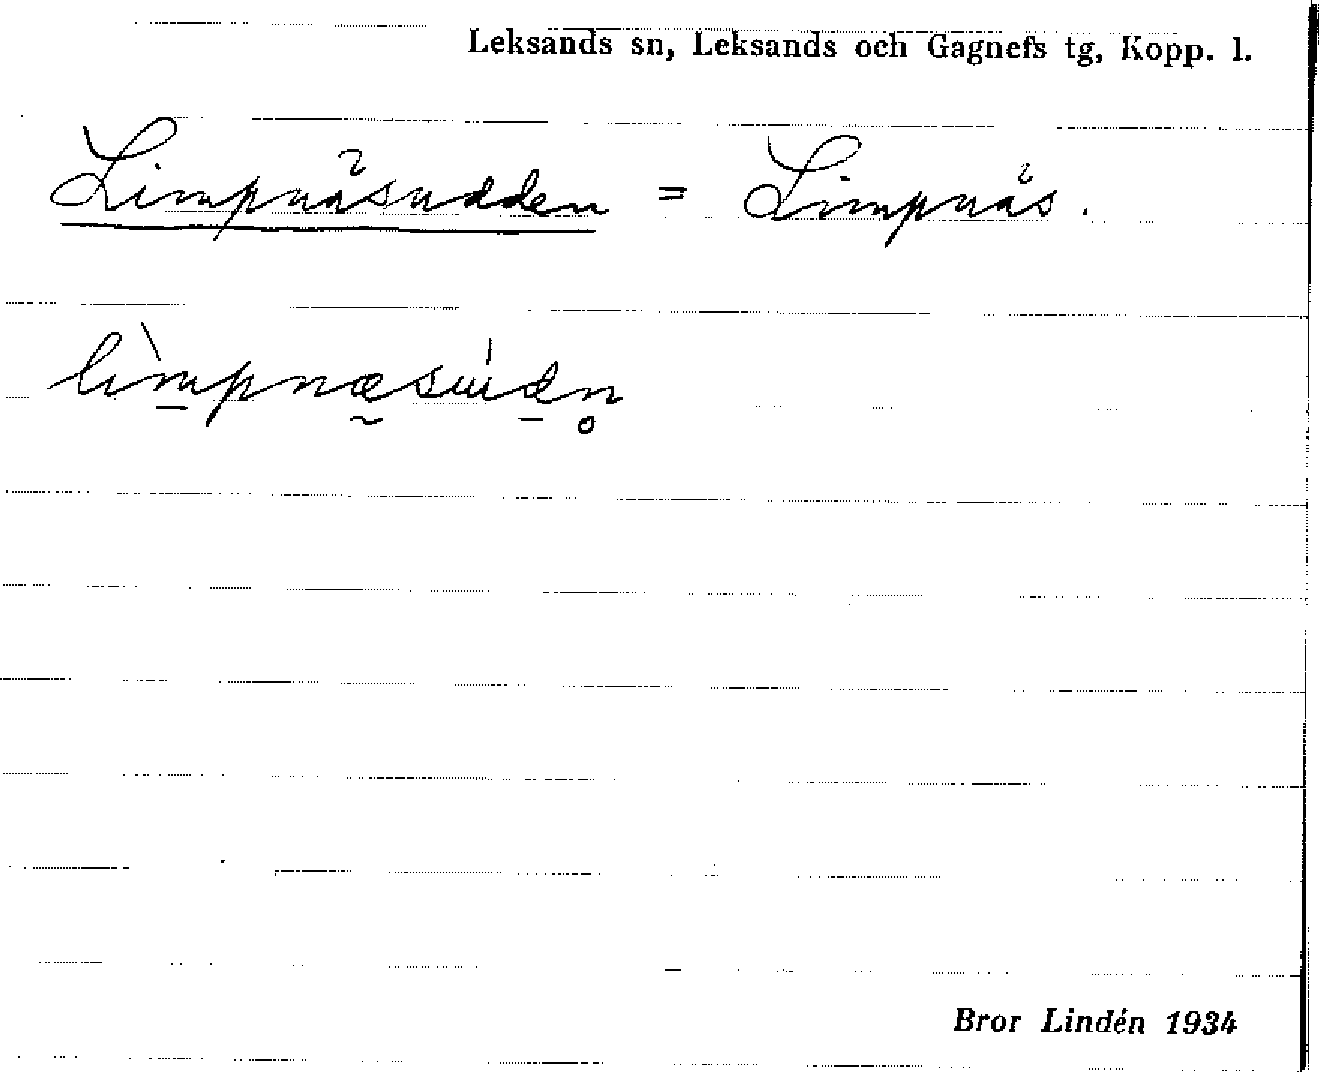 Leksands sn, Leksands och Gagnefs tg, Kopp. l.
Limpnäsudden = Limpnäs.
Bror Lindén 1934